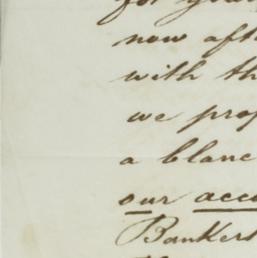 for your
now aft
with th
we prop
a blanc
our acco
Bankers